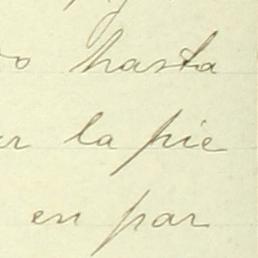 hasta
la pie
en par